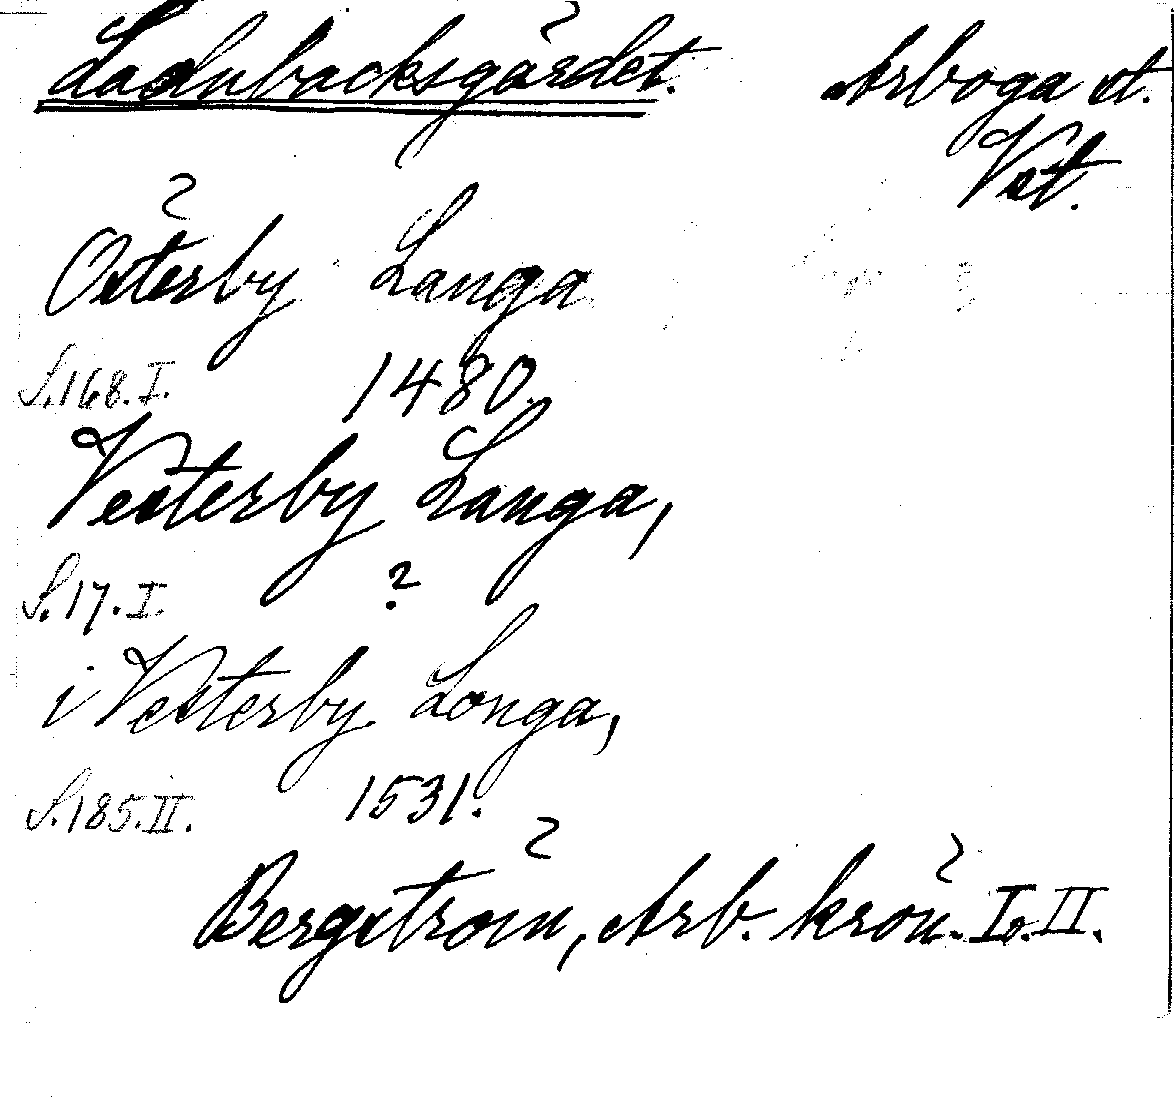 Ladubacksgärdet. Arboga st.
Vst.
Österby Langa
S.168.I. 1480.
Vesterby Langa,
S.17.I. ?
i Vesterby Longa,
S.185.II. 1531.
Bergström, Arb. krön. I o. II.